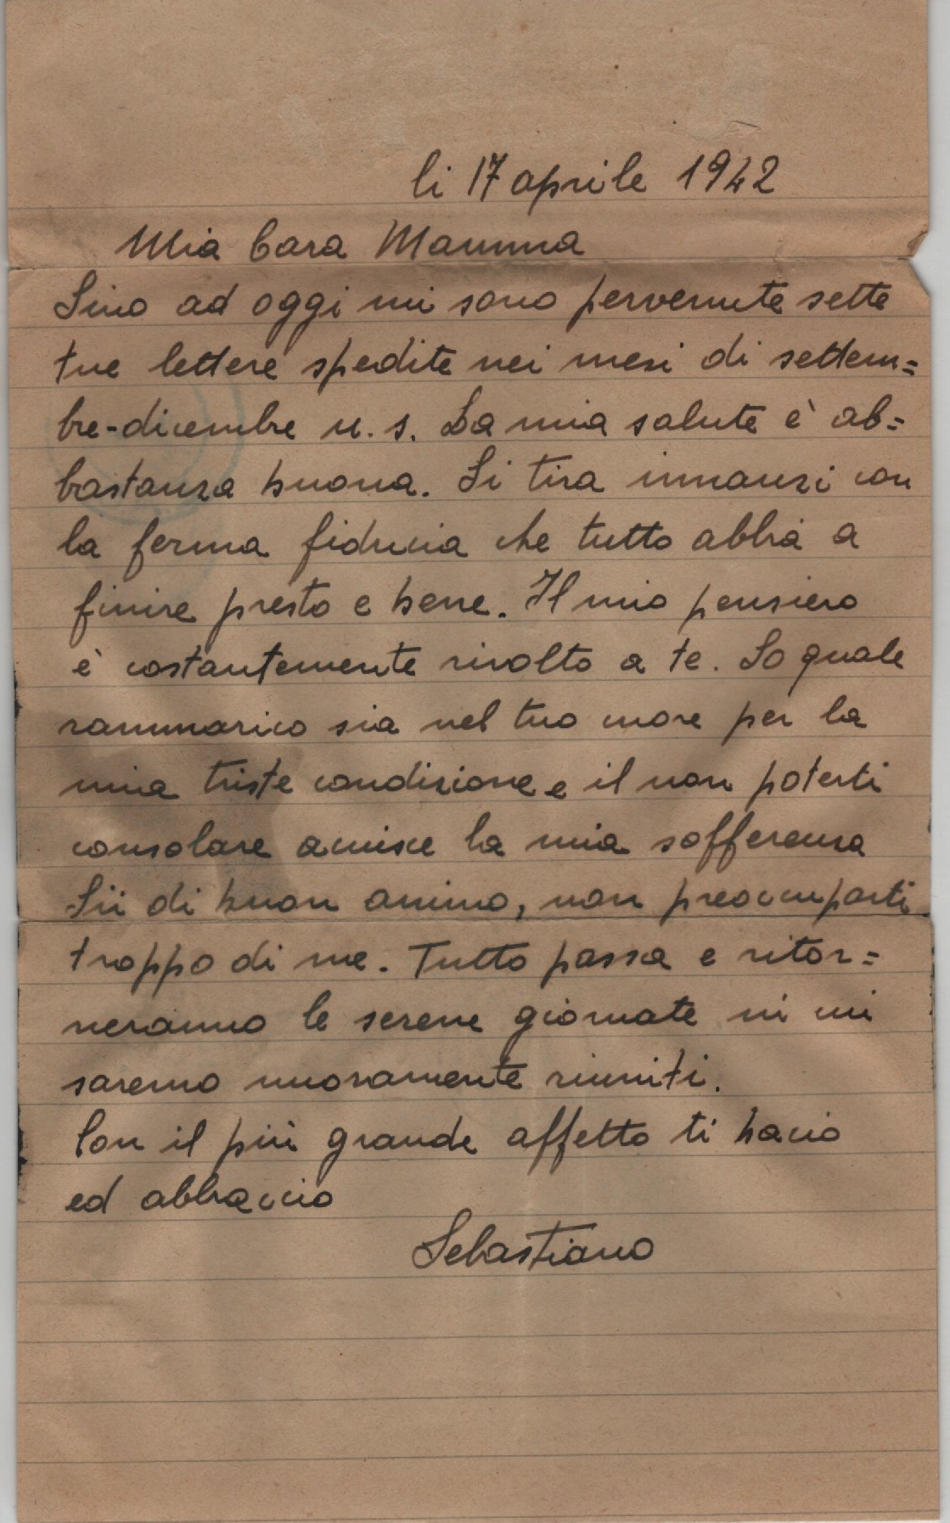 li 17 aprile 1942
Mia Cara Mamma
Sino ad oggi mi sono pervenute sette
tue lettere spedite nei mesi di settem=
bre-dicembre u. s. La mia salute è ab=
bastanza buona. Si tira innanzi con
la ferma fiducia che tutto abbia a
finire presto e bene. Il mio pensiero
è costantemente rivolto a te. So quale
rammarico sia nel tuo cuore per la
mia triste condizione e il non poterti
consolare acuisce la mia sofferenza
Sii di buon animo, non preoccuparti
troppo di me. Tutto passa e ritor=
neranno le serene giornate in cui
saremo nuovamente riuniti.
Con il più grande affetto ti bacio
ed abbraccio
Sebastiano